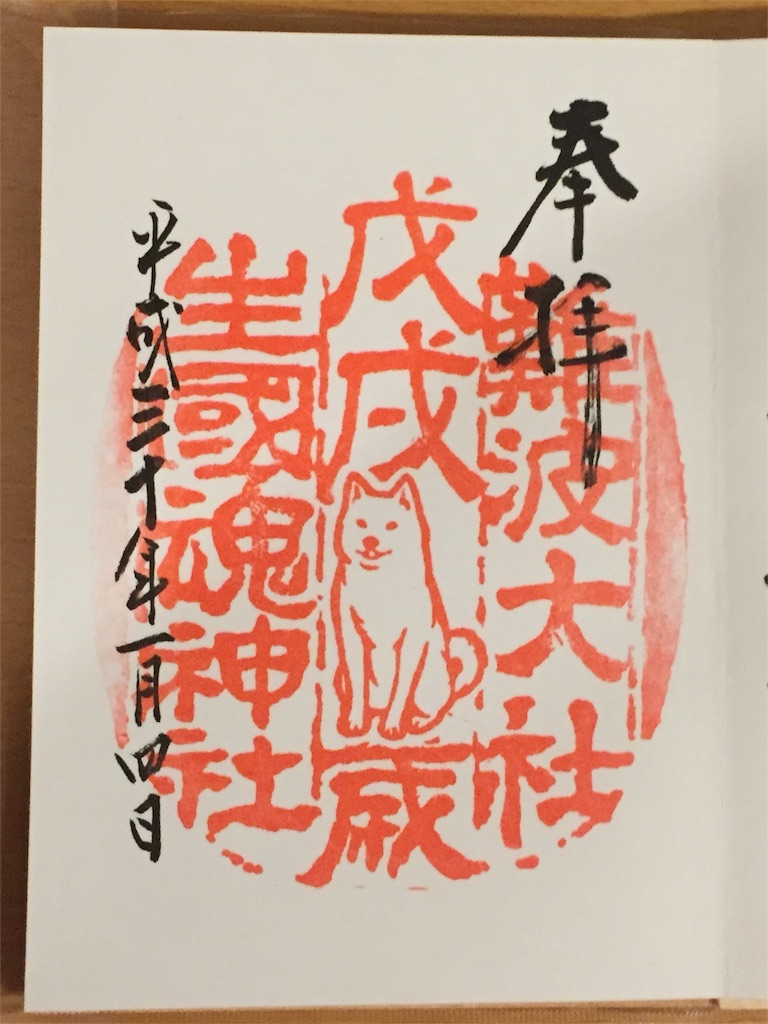 奉拝
難波大社
戊戌
歳
生國魂神社
平成三十年一月四日